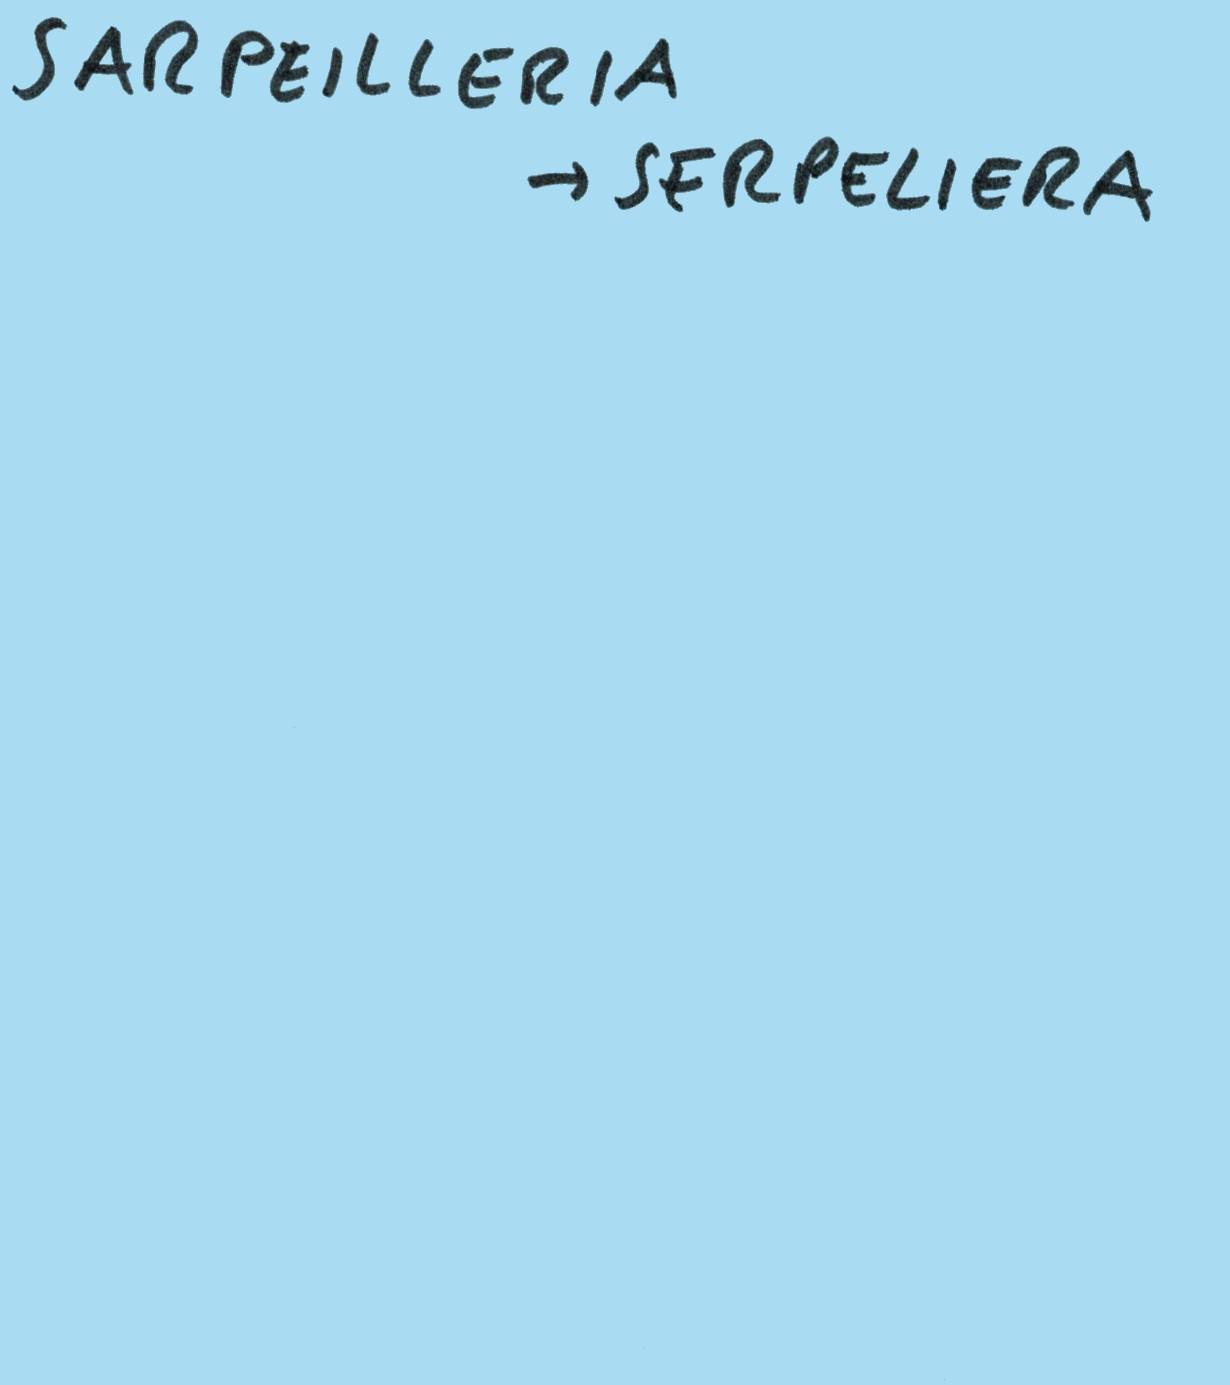 SARPEILLERIA
→ SERPELIERA